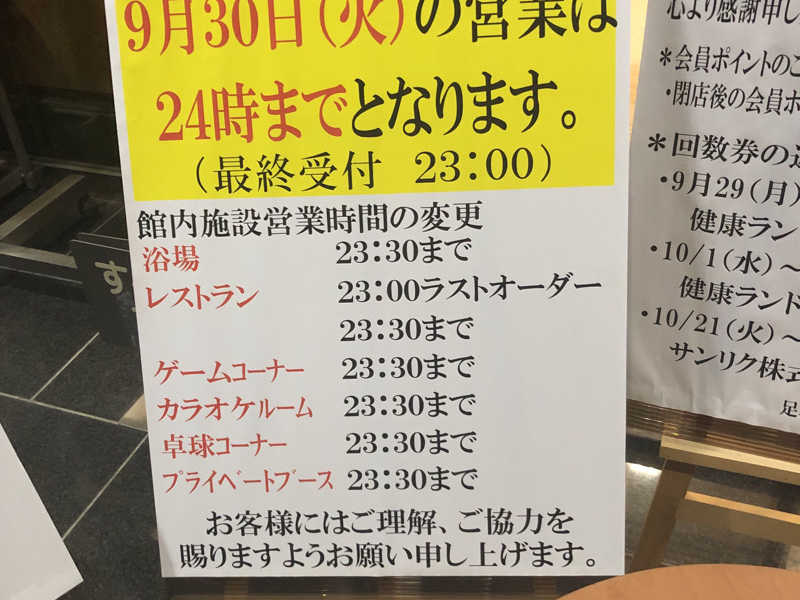 9月30日（火）の営業は
24時までとなります。
（最終受付 23:00）
館内施設営業時間の変更
浴場 23:30まで
レストラン 23:00ラストオーダー
23:30まで
ゲームコーナー 23:30まで
カラオケルーム 23:30まで
卓球コーナー 23:30まで
プライベートブース 23:30まで
お客様にはご理解、ご協力を
賜りますようお願い申し上げます。
す
心より感謝申し
＊会員ポイントのこ
・閉店後の会員ポ
＊回数券の
・9月29（月）
健康ラン
・10/1（水）～
健康ランド
・10/21（火）～
サンリク株式
足